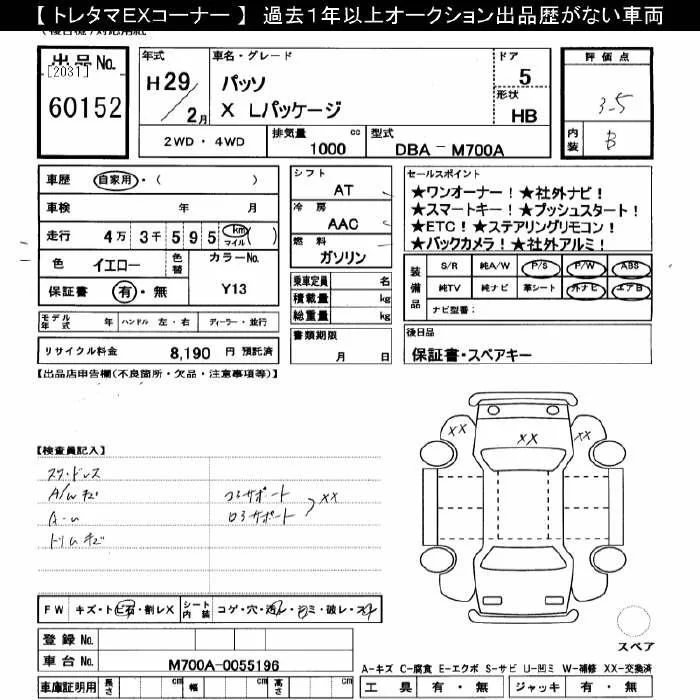 【 トレタマEXコーナー 】 過去1年以上オークション出品歴がない車両
出品No.
[2031]
60152
年式
H29
2月
車名・グレード
パッソ
X Lパッケージ
ドア
5
形状
HB
2WD ・ 4WD
排気量
1000 cc
型式
DBA － M700A
評価点
3.5
内装
B
車歴 自家用・( )
車検 年 月
走行 4万 3千 5 9 5 km マイル ( )
色 イエロー 色替 カラーNo.
保証書 有・無 Y13
シフト
AT
冷房
AAC
燃料
ガソリン
乗車定員 名
積載量 kg
総重量 kg
セールスポイント
★ワンオーナー！★社外ナビ！
★スマートキー！★プッシュスタート！
★ETC！★ステアリングリモコン！
★バックカメラ！★社外アルミ！
装備品
S/R 純A/W P/S P/W ABS
純TV 純ナビ 革シート 外ナビ エアB
ナビ型番：
モデル年式 年 ハンドル 左・右 ディーラー・並行
リサイクル料金 8,190 円 預託済
書類期限
月 日
後日品
保証書・スペアキー
【出品店申告欄(不良箇所・欠品・注意事項等)】
【検査員記入】
A/Wキズ
コアサポート
XX
トリムキズ
XX
XX
XX
FW キズ・ト 石・割レX シート内装 コゲ・穴・
登録 No.
車台 No. M700A-0055196
車庫証明用 長さ cm 幅 cm 高さ cm
スペア
A-キズ C-腐食 E-エクボ S-サビ U-凹ミ W-補修 XX-交換済
工具 有・無 ジャッキ 有・無